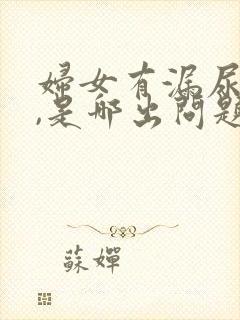 婦女有漏尿
,是哪出問題
蘇嬋